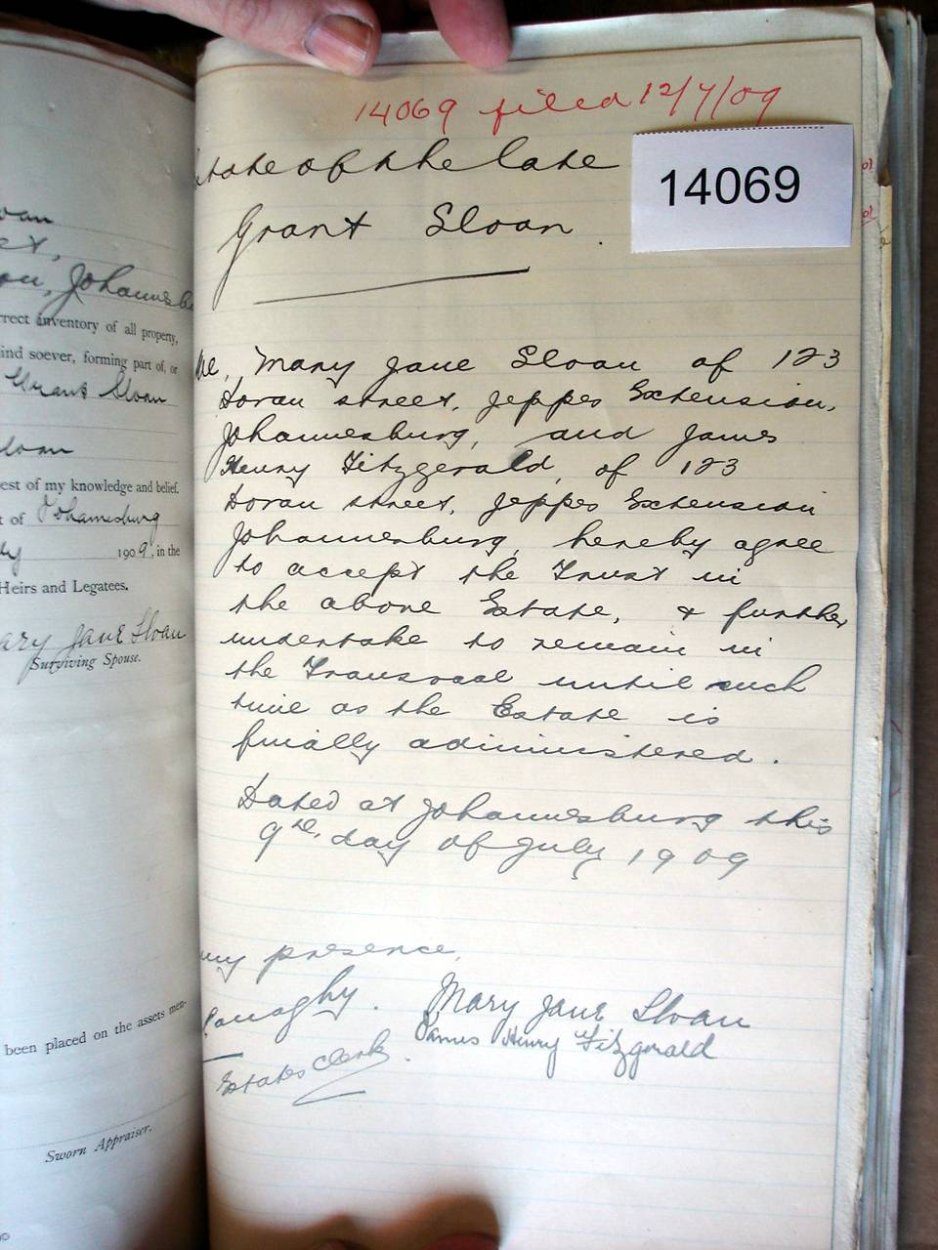 oan
et,
on, Johannesb
rrect inventory of all property,
ind soever, forming part of, or
Grant Sloan
loan
est of my knowledge and belief.
t of Johannesburg
ly 1909, in the
Heirs and Legatees.
ary Jane Sloan
Surviving Spouse.
been placed on the assets men-
Sworn Appraiser.
14069 filed 12/7/09
14069
state of the late
Grant Sloan.
We, Mary Jane Sloan of 123
Doran street, Jeppes Extension,
Johannesburg, and James
Henry Fitzgerald, of 123
Doran street, Jeppes Extension
Johannesburg, hereby agree
to accept the Trust in
the above Estate, & further
undertake to remain in
the Transvaal until such
time as the Estate is
finally administered.
Dated at Johannesburg this
9th, day of July 1909
my presence,
onaghy. Mary Jane Sloan
James Henry Fitzgerald
Estates Clerk.